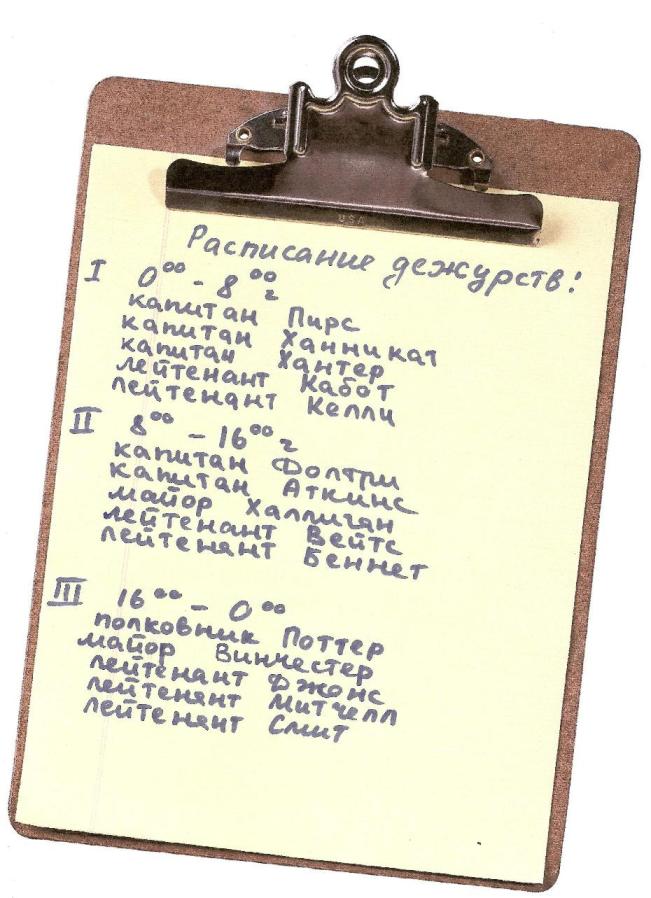 USA
Расписание дежурств:
I 0⁰⁰ - 8⁰⁰ г
капитан Пирс
капитан Ханникат
капитан Хантер
лейтенант Кабот
лейтенант Келли
II 8⁰⁰ - 16⁰⁰ г
капитан Фолтри
капитан Аткинс
майор Халлиган
лейтенант Вейтс
лейтенант Беннет
III 16⁰⁰ - 0⁰⁰
полковник Поттер
майор Винчестер
лейтенант Джонс
лейтенант Митчелл
лейтенант Смит